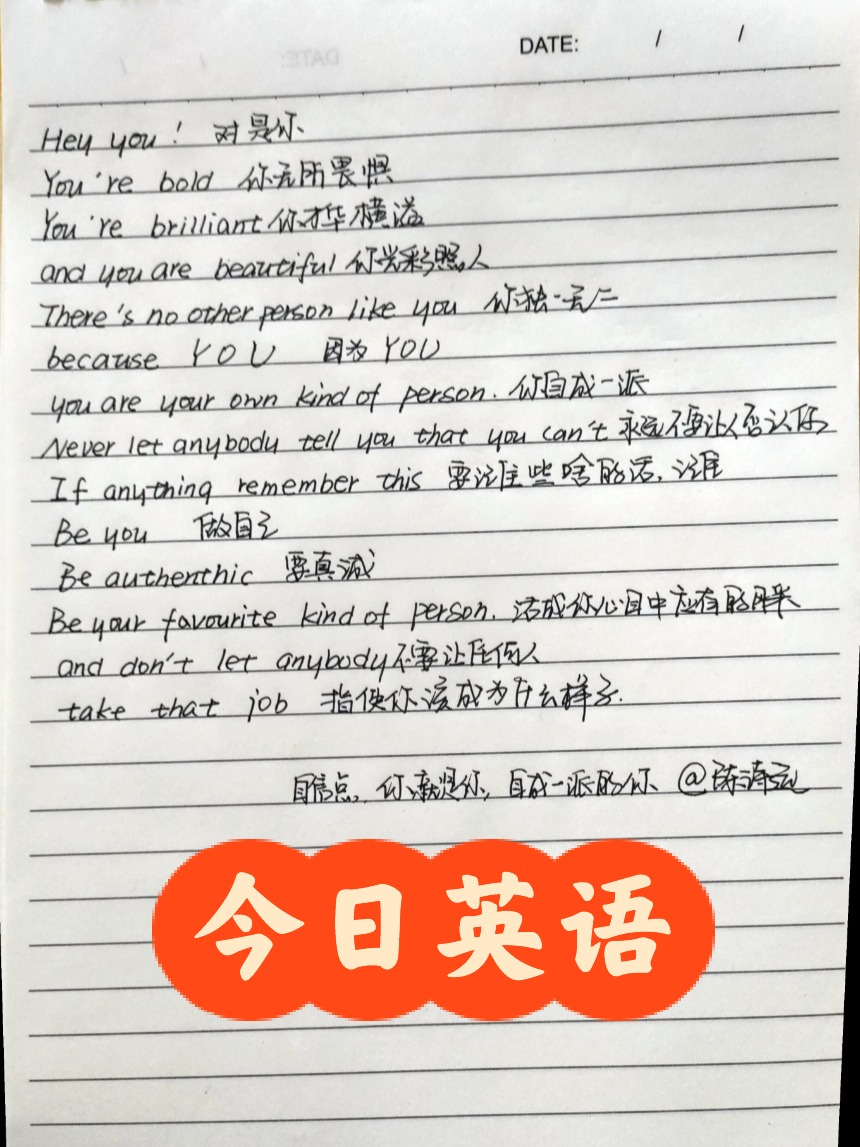 DATE: / /
Hey you! 对是你
You're bold 你无所畏惧
You're brilliant 你才华横溢
and you are beautiful 你光彩照人
There's no other person like you 你独一无二
because YOU 因为YOU
you are your own kind of person. 你自成一派
Never let anybody tell you that you can't 永远不要让人否认你
If anything remember this 要记住些啥的话,记住
Be you 做自己
Be authenthic 要真诚
Be your favourite kind of person. 活成你心目中应有的样
and don't let anybody 不要让任何人
take that job 指使你该成为什么样子.
自信点, 你就是你, 自成一派的你、@陈涛
今日英语